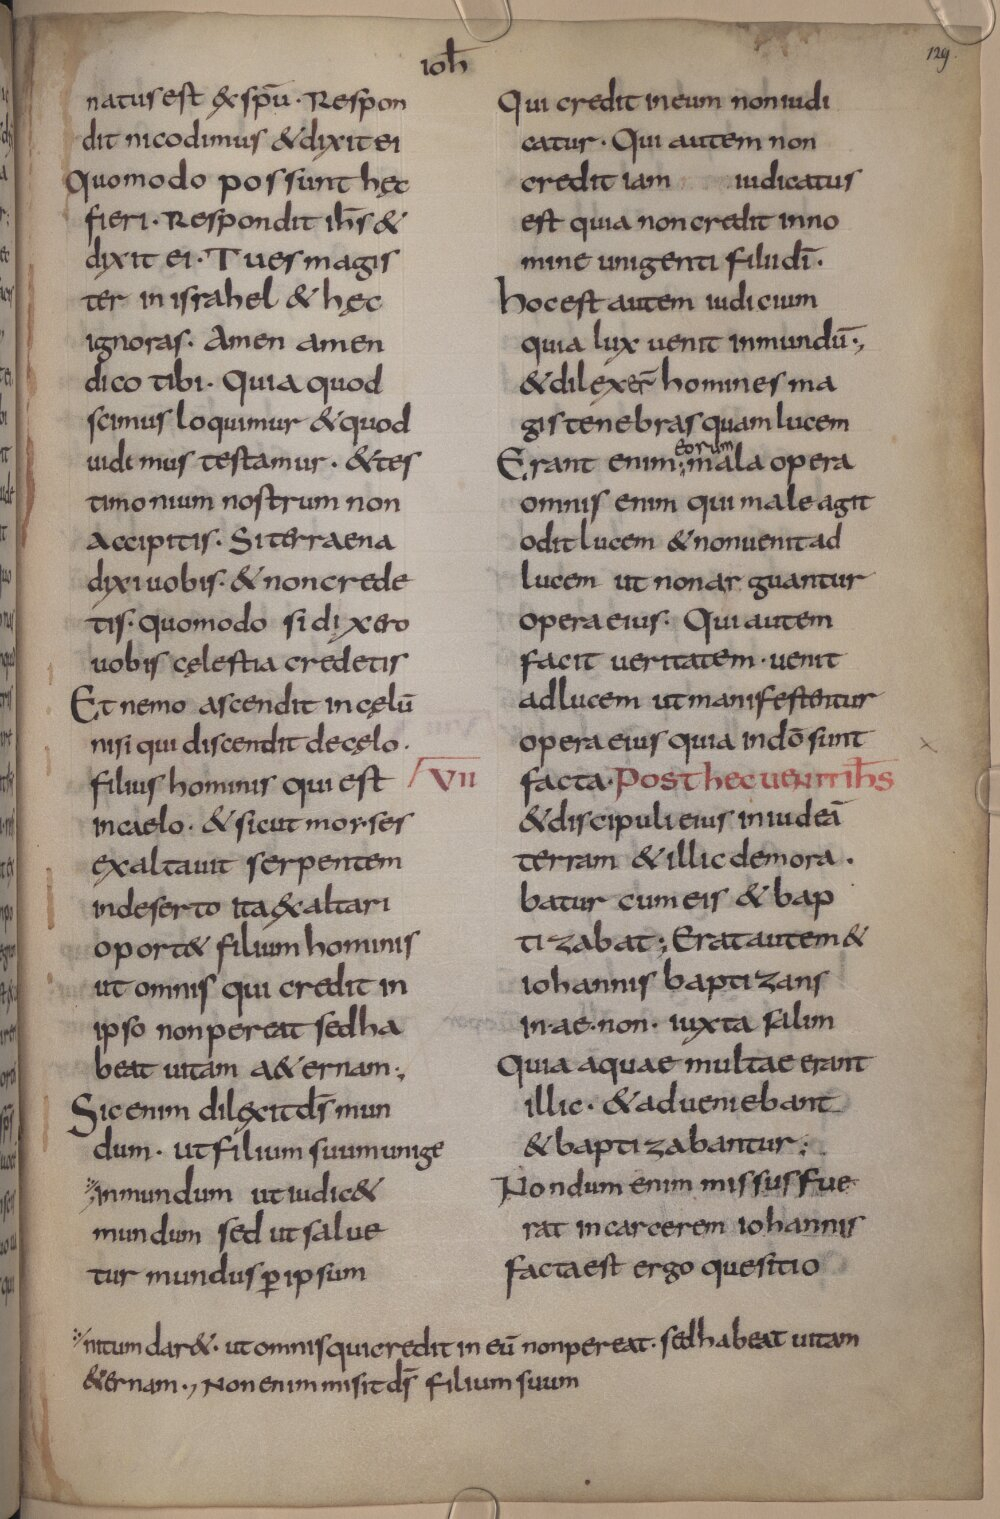 ioħ
129.
natus est & sp̄u · Respon
dit nicodimus & dixit ei
Quomodo possunt hęc
fieri · Respondit ih̄s &
dixit ei · Tu es magis
ter in israhel & hęc
ignoras · Amen amen
dico tibi · Quia quod
scimus loquimur & quod
uidimus testamur · & tes
timonium nostrum non
accipitis · Si terraena
dixi uobis · & non crede
tis · quomodo si dixero
uobis cęlestia credetis
Et nemo ascendit in cęlū
nisi qui discendit de cęlo ·
filius hominis qui est
in caelo · & sicut mor·ses
exaltauit serpentem
in deserto ita exaltari
oport& filium hominis
ut omnis qui credit in
ipso non pereat sed ha
beat uitam a&ernam ·,
Sic enim dilexit d̄s mun
dum · ut filium suum unige
in mundum ut iudic&
mundum sed ut salue
tur mundus ꝑ ipsum
Qui credit in eum non iudi
catur · Qui autem non
credit iam iudicatus
est quia non credit in no
mine unigenti filii dī ·
hoc est autem iudicium
quia lux uenit in mundū ·,
& dilexer̄ homines ma
gis tenebras quam lucem
eorum
Erant enim ; mala opera
omnis enim qui male agit
odit lucem & non uenit ad
lucem ut non arguantur
opera eius · Qui autem
facit ueritatem · uenit
ad lucem ut manifestentur
opera eius quia in dō sunt
VII
facta · Post hec uenit ih̄s
& discipuli eius in iudeā
terram & illic demora ·
batur cum eis & bap
tizabat ; Erat autem &
iohannis baptizans
in·ae·non· iuxta salim
Quia aquae multae erant
illic · & adueniebant
& baptizabantur ;
Nondum enim missus fue
rat in carcerem iohannis
facta est ergo quesitio
nitum dar& · ut omnis qui credit in eū non pereat · sed habeat uitam
&ernam ·, Non enim misit d̄s filium suum